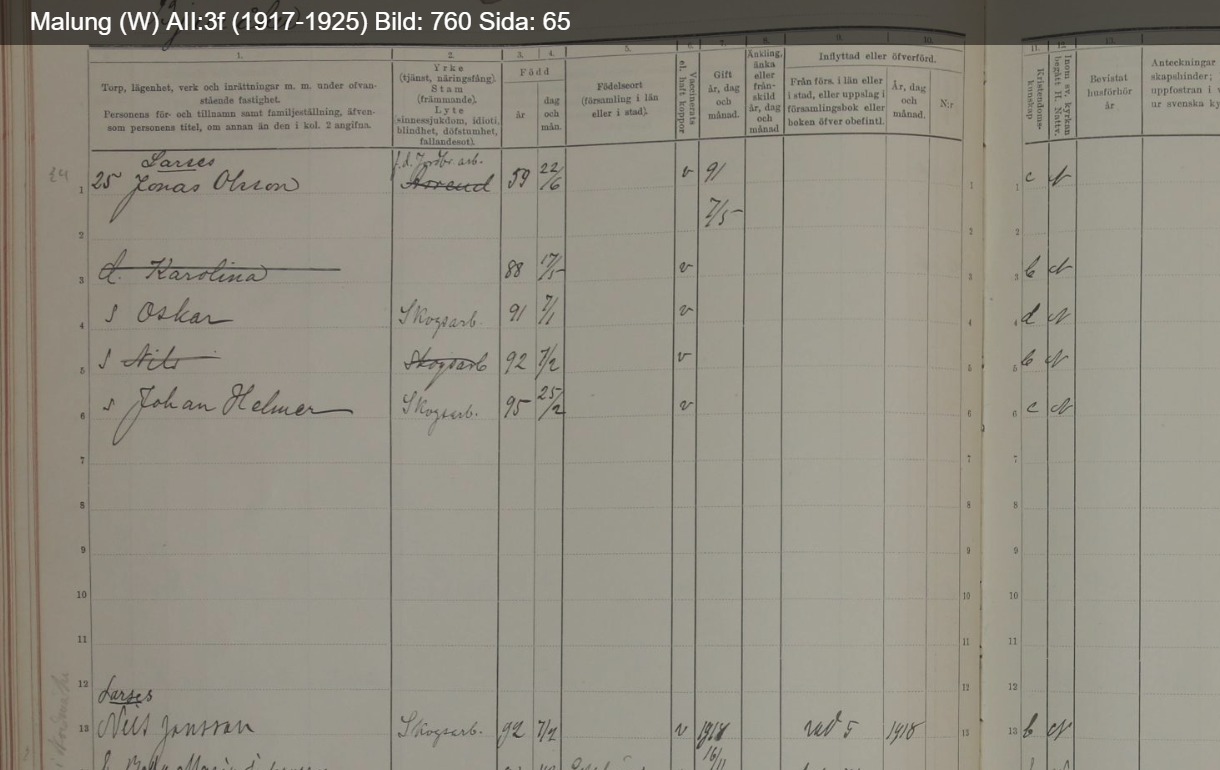 Malung (W) AII:3f (1917-1925) Bild: 760 Sida: 65
1. 2. 3. 4. 5. 6. 7. 8. 9. 10. 11. 12. 13.
Torp, lägenhet, verk och inrättningar m. m. under ofvan-
stående fastighet.
Personens för- och tillnamn samt familjeställning, äfven-
som personens titel, om annan än den i kol. 2 angifna.
Yrke
(tjänst, näringsfång).
Stam
(främmande).
Lyte
(sinnessjukdom, idioti,
blindhet, döfstumhet,
fallandesot).
Född
år
dag
och
mån.
Födelseort
(församling i län
eller i stad).
Vaccinerats
el. haft koppor
Gift
år, dag
och
månad.
Änkling,
änka
eller
från-
skild
år, dag
och
månad
Inflyttad eller öfverförd.
Från förs. i län eller
i stad, eller uppslag i
församlingsbok eller
boken öfver obefintl.
År, dag
och
månad.
N:r
Kristendoms-
kunskap
Inom sv. kyrkan
begått H. Nattv.
Bevistat
husförhör
år
Anteckningar
skapshinder;
uppfostran i
ur svenska ky
Larses f.d. Jordbr. arb.
1 25 Jonas Olsson 59 22/6 v 91 1 1 c N
2 7/5 2 2
3 d. Karolina 88 17/5 v 3 3 b N
4 s Oskar Skogsarb. 91 7/1 v 4 4 d N
5 s Nils Skogsarb 92 7/2 v 5 5 b N
6 s Johan Helmer Skogsarb. 95 25/2 v 6 6 c N
7 7 7
8 8 8
9 9 9
10 10 10
11 11 11
12 Larses 12 12
13 Nils Jonsson Skogsarb. 92 7/2 v 1918 rad 5 1918 13 13 b N
16/11